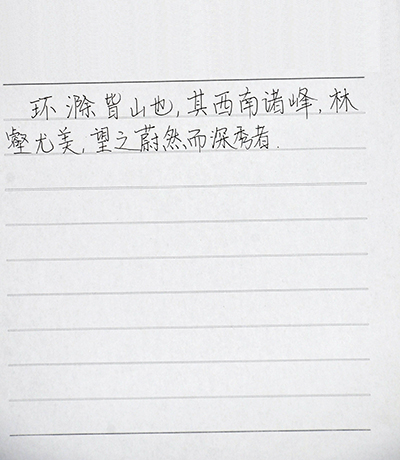 环滁皆山也,其西南诸峰,林
壑尤美,望之蔚然而深秀者.